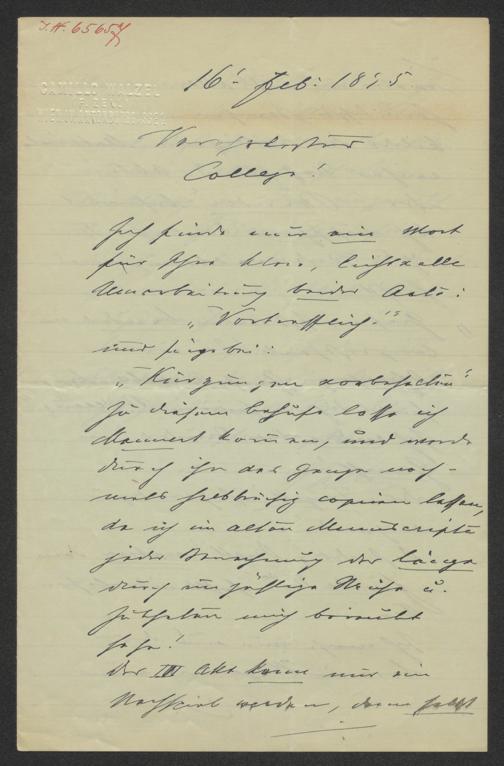 I.N. 65657
CAMILLO WALZEL
16. Feb: 1875
Verehrtester
College!
Ich finde nur ein Wort
für Ihre klare, lichtvolle
Umarbeitung beider Acte:
„Vortrefflich!"
und füge bei:
„Kürzungen vorbehalten"
Zu diesem Behufe lasse ich
kommen, und werde
durch ihn das Ganze noch-
mals halbbrüchig copieren lassen,
da ich im alten Manuscripte
jeder Berechnung der Länge
durch unzählige Striche u.
Zuthaten mich beraubt
sehe!
Der III Akt kann nur ein
Nachspiel werden, denn selbst